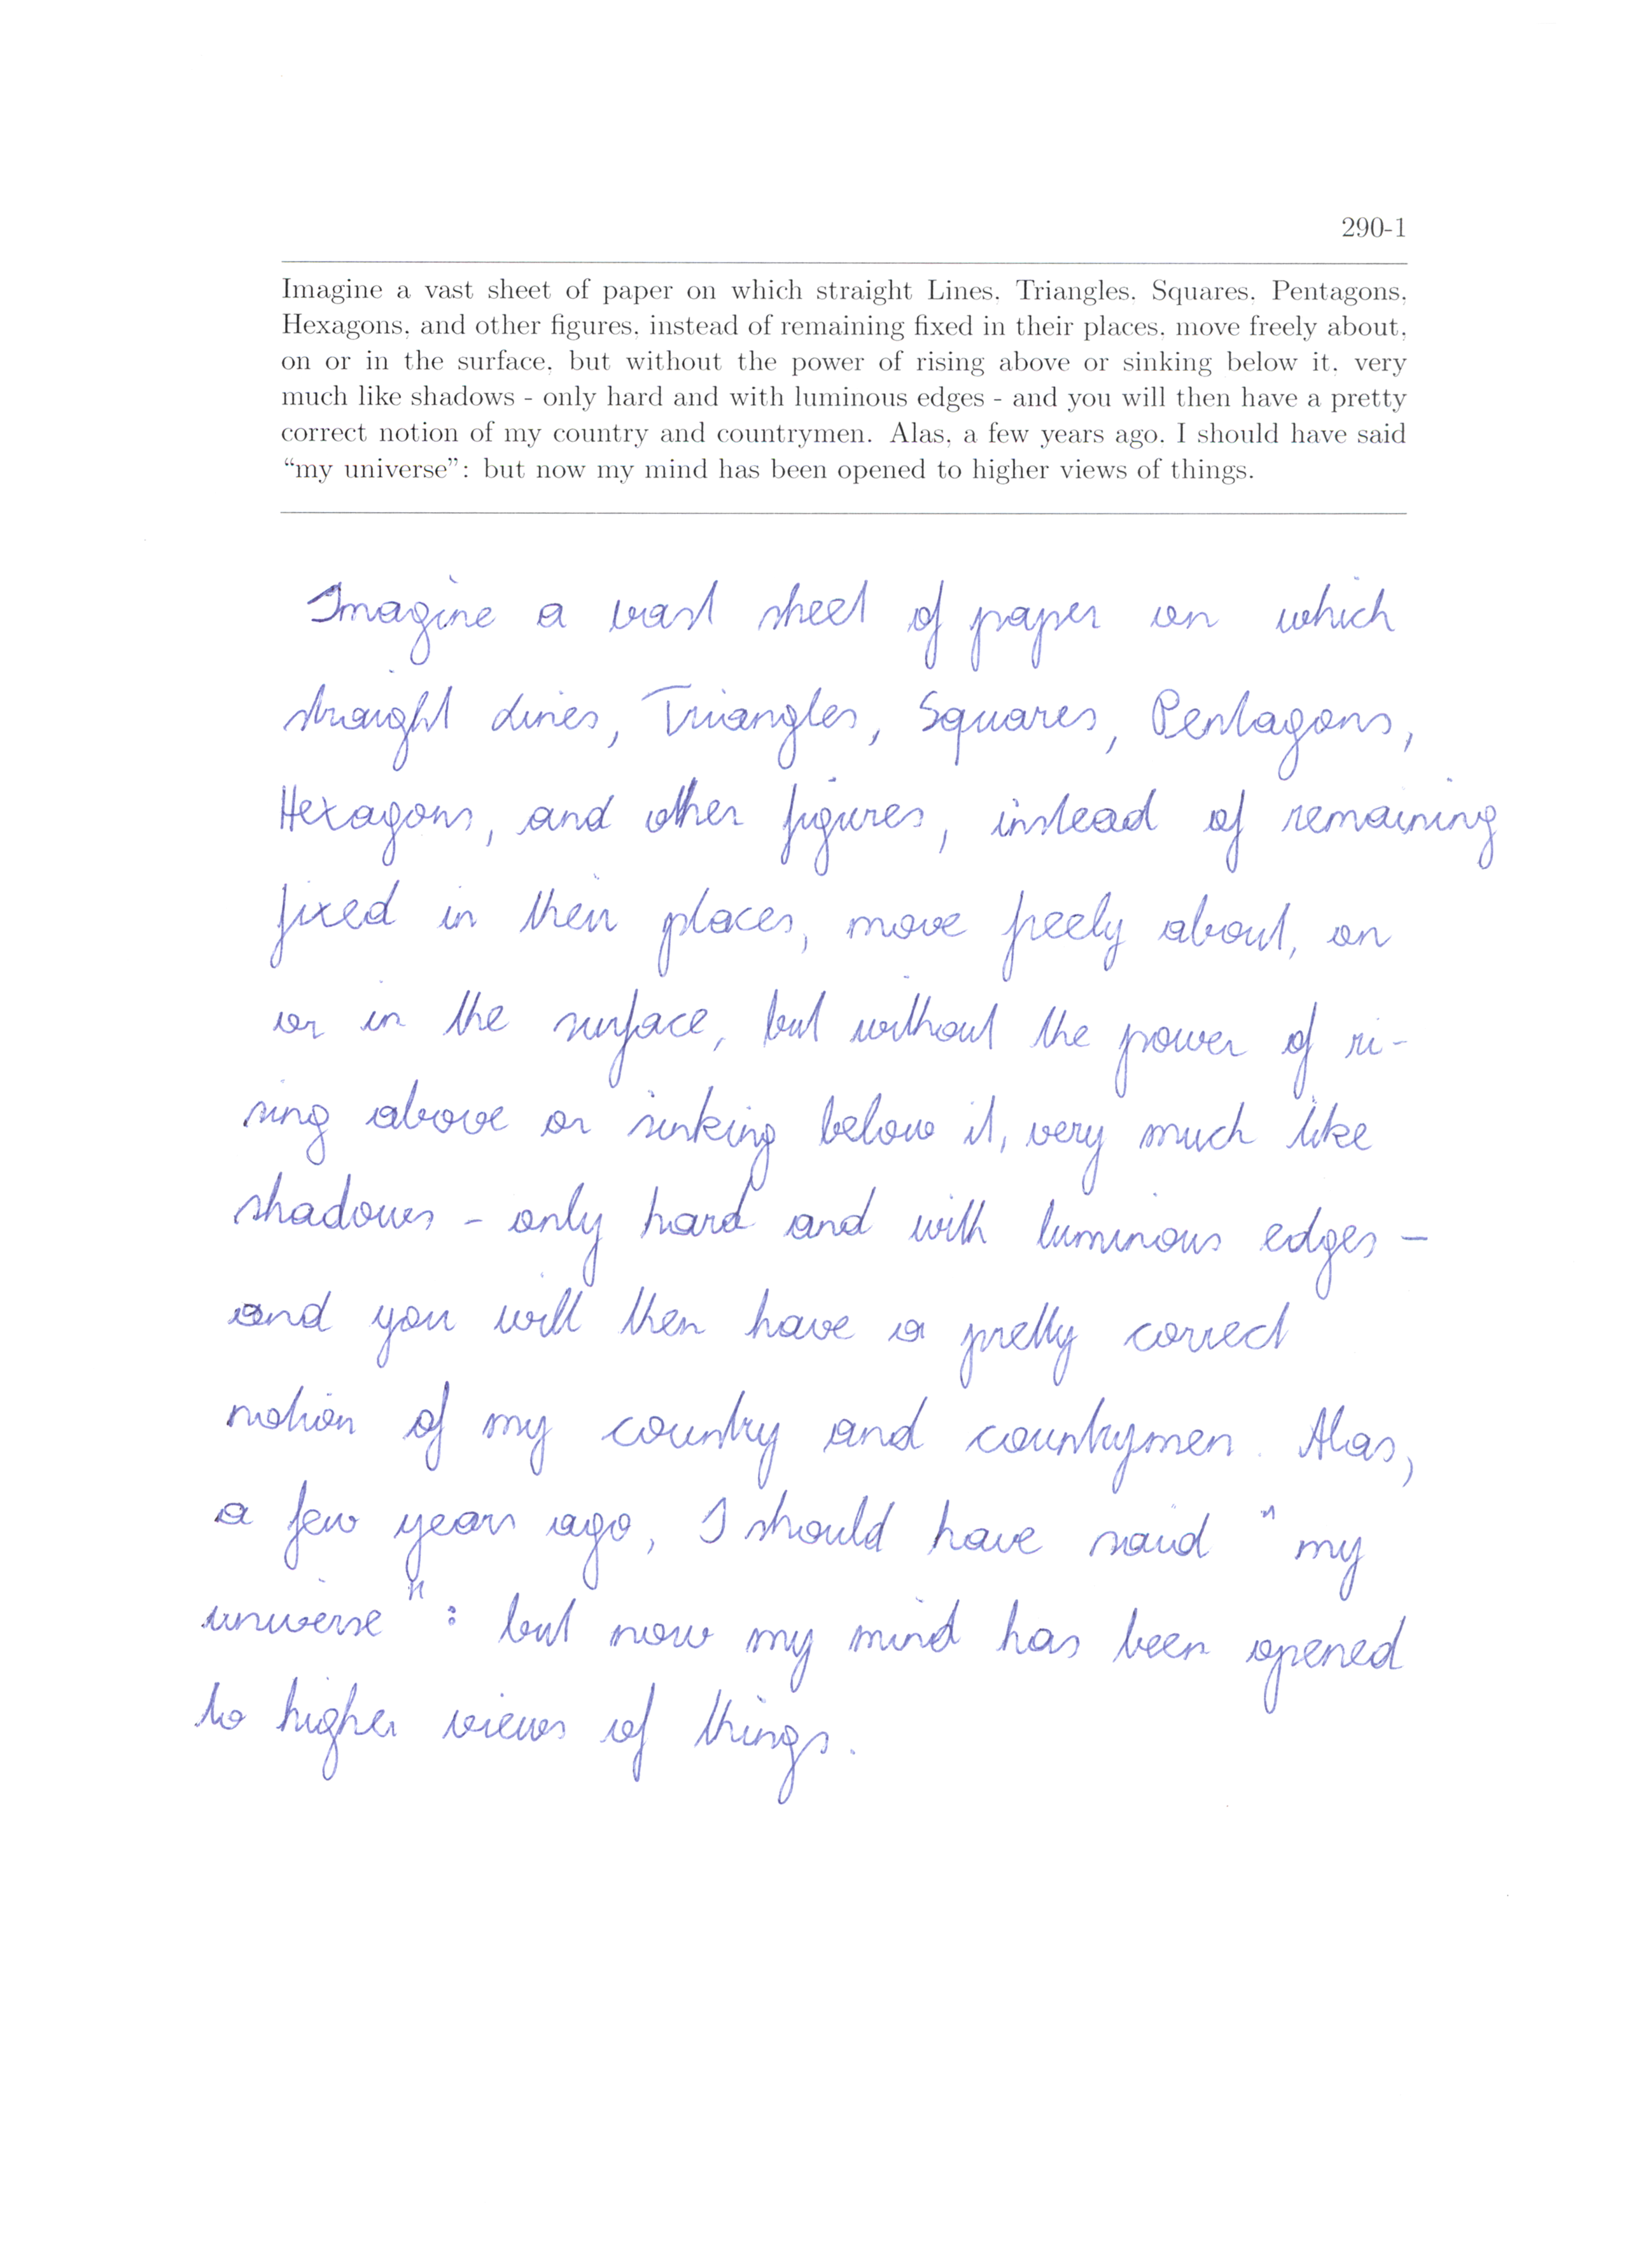 290-1
Imagine a vast sheet of paper on which straight Lines, Triangles, Squares, Pentagons,
Hexagons, and other figures, instead of remaining fixed in their places, move freely about,
on or in the surface, but without the power of rising above or sinking below it, very
much like shadows - only hard and with luminous edges - and you will then have a pretty
correct notion of my country and countrymen. Alas, a few years ago, I should have said
“my universe”: but now my mind has been opened to higher views of things.
Imagine a vast sheet of paper on which
straight Lines, Triangles, Squares, Pentagons,
Hexagons, and other figures, instead of remaining
fixed in their places, move freely about, on
or in the surface, but without the power of ri-
sing above or sinking below it, very much like
shadows - only hard and with luminous edges -
and you will then have a pretty correct
notion of my country and countrymen. Alas,
a few years ago, I should have said "my
universe": but now my mind has been opened
to higher views of things.